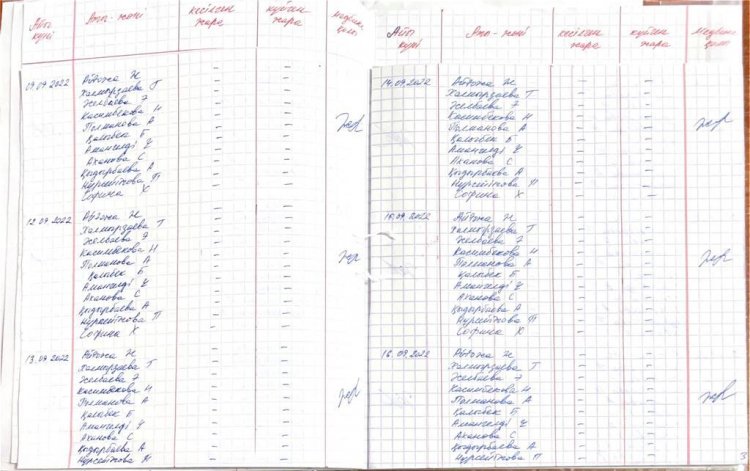 Айы күні Аты-жөні кесілген жара күйген жара Медбике қолы
09.09.2022 Абдожа Н – –
Халмурзаева Г – –
Желбаева Э – –
Касимбекова Н – –
Полманова А – –
Қалыбек Б – –
Амангелді Ұ – –
Ахапова С – –
Қыдырбаева А – –
Нурсейтова П – –
Софина Х – –
12.09.2022 Абдожа Н – –
Халмурзаева Г – –
Желбаева Э – –
Касимбекова Н – –
Полманова А – –
Қалыбек Б – –
Амангелді Ұ – –
Ахапова С – –
Қыдырбаева А – –
Нурсейтова П – –
Софина Х – –
13.09.2022 Абдожа Н – –
Халмурзаева Г – –
Желбаева Э – –
Касимбекова Н – –
Полманова А – –
Қалыбек Б – –
Амангелді Ұ – –
Ахапова С – –
Қыдырбаева А – –
Нурсейтова – –
Айы күні Аты-жөні кесілген жара күйген жара Медбике қолы
14.09.2022 Абдожа Н – –
Халмурзаева Г – –
Желбаева Э – –
Касимбекова Н – –
Полманова А – –
Қалыбек Б – –
Амангелді Ұ – –
Ахапова С – –
Қыдырбаева А – –
Нурсейтова П – –
Софина Х – –
15.09.2022 Абдожа Н – –
Халмурзаева Г – –
Желбаева Э – –
Касимбекова Н – –
Полманова А – –
Қалыбек Б – –
Амангелді Ұ – –
Ахапова С – –
Қыдырбаева А – –
Нурсейтова П – –
Софина Х – –
16.09.2022 Абдожа Н – –
Халмурзаева Г – –
Желбаева Э – –
Касимбекова Н – –
Полманова А – –
Қалыбек Б – –
Амангелді Ұ – –
Ахапова С – –
Қыдырбаева А – –
Нурсейтова П – –
3